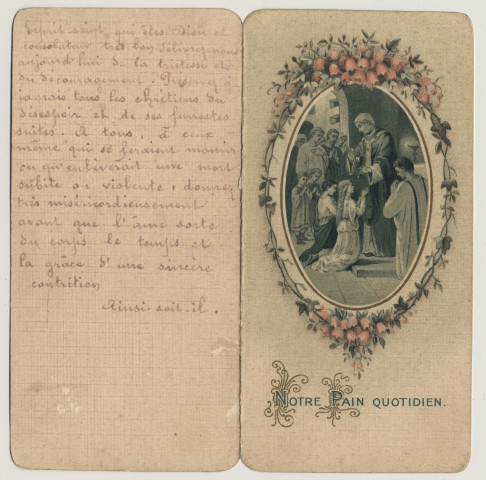 Esprit saint, qui êtes Dieu et
consolateur très bon délivrez-nous
aujourd'hui de la tristesse et
du découragement. Préservez à
jamais tous les chrétiens du
désespoir et de ses funestes
suites. A tous, à ceux
même qui se feraient mourir
ou qu'enlèverait une mort
subite ou violente, donnez
très miséricordieusement
avant que l'âme sorte
du corps le temps et
la grâce d'une sincère
contrition
Ainsi-soit-il.
NOTRE PAIN QUOTIDIEN.